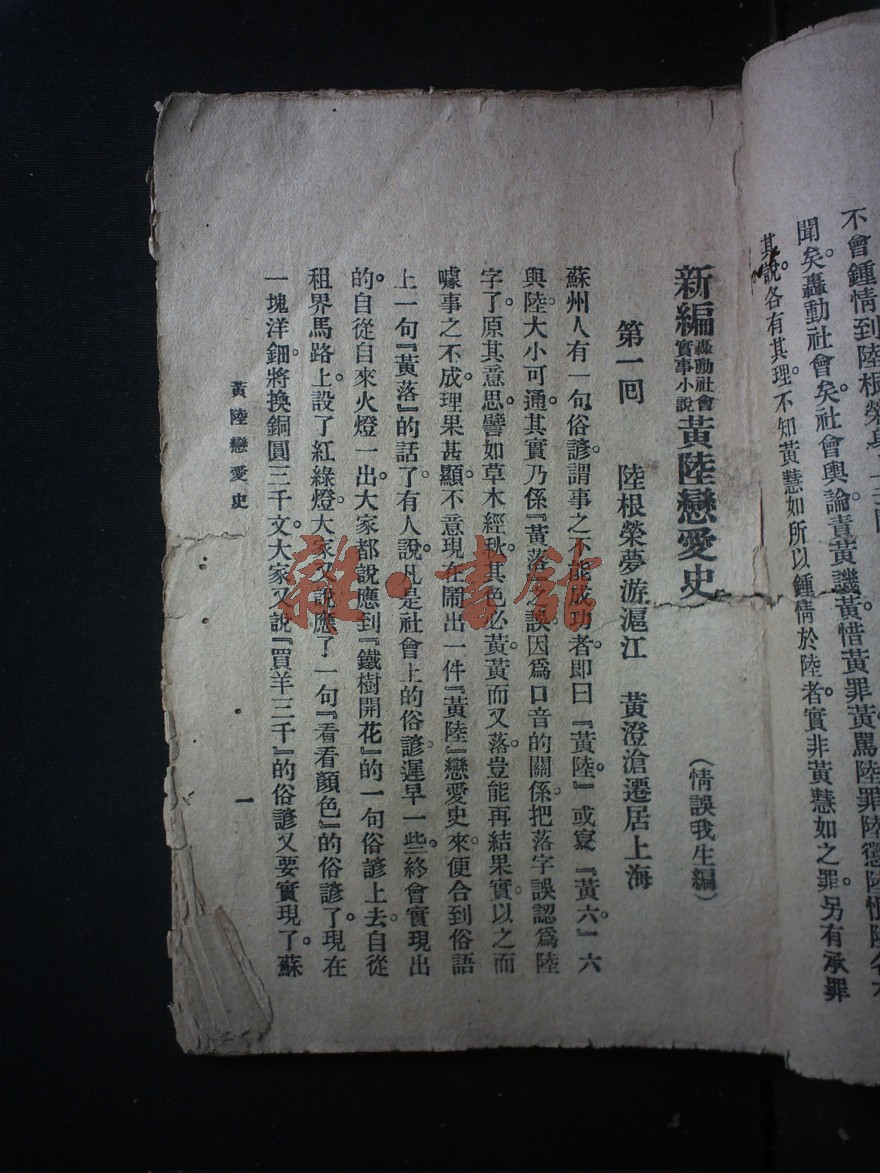 不會鍾情到陸根榮身上
聞矣。轟動社會矣。社會輿論。責黃譏黃惜黃罪黃罵陸罪陸懲陸恨陸。各
其說。各有其理。不知黃慧如所以鍾情於陸者。實非黃慧如之罪。另有承罪
新編轟動社會實事小說黃陸戀愛史
(情誤我生編)
第一回 陸根榮夢游滬江 黃澄滄遷居上海
蘇州人有一句俗諺。謂事之不能成功者。即曰『黃陸。』或寫『黃六。』六
與陸大小可通。其實乃係『黃落』之誤。因為口音的關係。把落字誤認爲陸
字了。原其意思。譬如草木經秋。其色必黃。黃而又落。豈能再結果實。以之而
噱事之不成。理果甚顯。不意現在鬧出一件『黃陸』戀愛史來。便合到俗語
上一句『黃落』的話了。有人說。凡是社會上的俗諺。遲早一些。終會實現出
的。自從自來火燈一出。大家都說應到『鐵樹開花』的一句俗諺上去。自從
租界馬路上設了紅綠燈。大家又說應了一句『看看顏色』的俗諺了。現在
一塊洋鈿。將換銅圓三千文。大家又說『買羊三千』的俗諺又要實現了。蘇
黃陸戀愛史
一
雜·書館